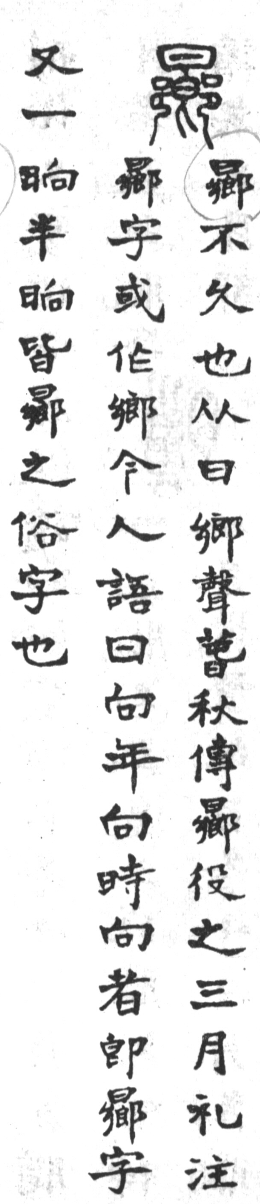 曏
曏不久也从日鄉聲萅秋傳曏役之三月礼注
曏字或作鄉今人語曰向年向時向者即曏字
又一晌半晌皆曏之俗字也